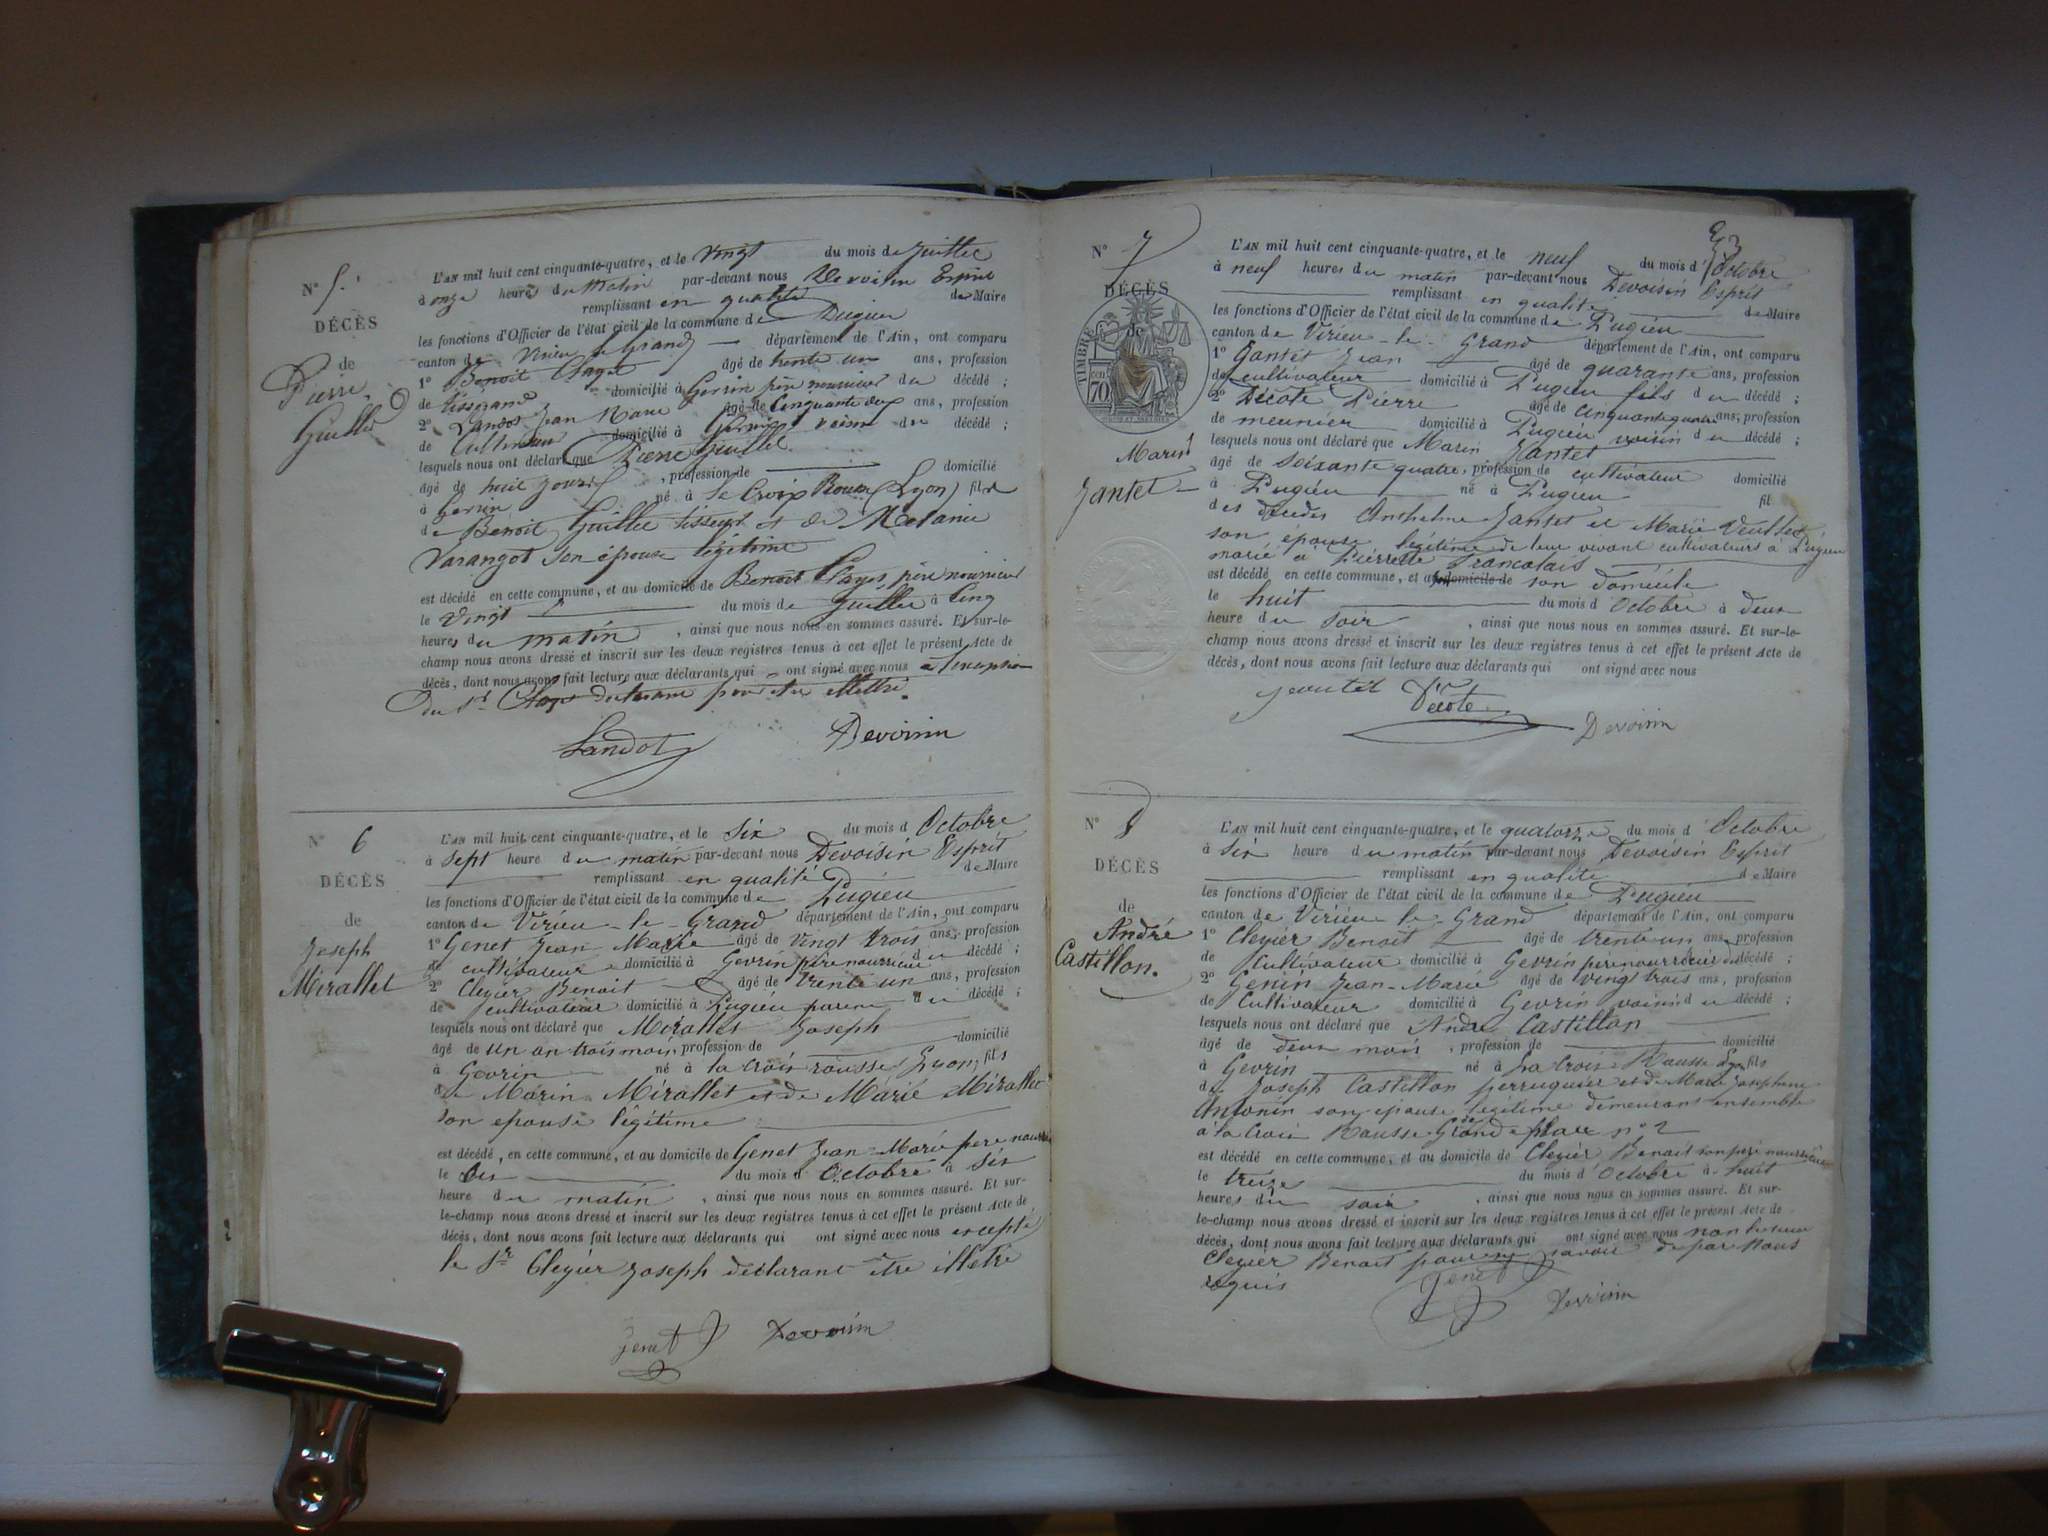 N° 5.
DÉCÈS
de
Pierre
Guillet
L'AN mil huit cent cinquante-quatre, et le vingt du mois de Juillet
à onze heures du matin par-devant nous Devoisin Esprit
remplissant en qualité de Maire
les fonctions d'Officier de l'état civil de la commune de Pugieu
canton de Virieu le Grand département de l'Ain, ont comparu
1° Benoit Clayet âgé de trente un ans, profession
de tisserand domicilié à Gevrin père nouricier du décédé ;
2° Landot Jean Marie âgé de Cinquante deux ans, profession
de Cultivateur domicilié à Gevrin voisin du décédé ;
lesquels nous ont déclaré que Pierre Guillet
âgé de huit jours, profession de domicilié
à Gevrin né à la Croix Rousse (Lyon) fils
de Benoit Guillet tisseur et de Melanie
Varangot son épouse légitime
est décédé en cette commune, et au domicile de Benoit père nouricier
le Vingt du mois de Juillet à Cinq
heures du matin, ainsi que nous nous en sommes assuré. Et sur-le-
champ nous avons dressé et inscrit sur les deux registres tenus à cet effet le présent Acte de
décès, dont nous avons fait lecture aux déclarants qui ont signé avec nous à l'exception
du Sr pour être illettré.
Landot Devoisin
N° 6
DÉCÈS
de
Joseph
Mirallet
L'AN mil huit cent cinquante-quatre, et le six du mois d Octobre
à sept heure du matin par-devant nous Devoisin Esprit
remplissant en qualité de Maire
les fonctions d'Officier de l'état civil de la commune de Pugieu
canton de Virieu-le-Grand département de l'Ain, ont comparu
1° Genet Jean Marie âgé de vingt trois ans, profession
de cultivateur domicilié à Gevrin père nourricier du décédé ;
2° Cleyier Benoit âgé de trente un ans, profession
de cultivateur domicilié à Pugieu parent du décédé ;
lesquels nous ont déclaré que Mirallet Joseph
âgé de un an trois mois, profession de domicilié
à Gevrin né à la croix rousse (Lyon) fils
de Marin Mirallet et de Marie Mirallet
son epouse légitime
est décédé, en cette commune, et au domicile de Genet Jean-Marie père
le six du mois d Octobre à six
heure du matin, ainsi que nous nous en sommes assuré. Et sur-
le-champ nous avons dressé et inscrit sur les deux registres tenus à cet effet le présent Acte de
décès, dont nous avons fait lecture aux déclarants qui ont signé avec nous excepté
le Sr Cleyier Joseph déclarant être illétré
Genet Devoisin
N° 7
DÉCÈS
de
TIMBRE
70
Marin
Jantet
L'AN mil huit cent cinquante-quatre, et le neuf du mois d'Octobre
à neuf heures du matin par-devant nous Devoisin Esprit
remplissant en qualité de Maire
les fonctions d'Officier de l'état civil de la commune de Pugieu
canton de Virieu-le-Grand département de l'Ain, ont comparu
1° Jantet Jean âgé de quarante ans, profession
de cultivateur domicilié à Pugieu fils du décédé ;
2° Décote Pierre âgé de cinquante quatre ans, profession
de meunier domicilié à Pugieu voisin du décédé ;
lesquels nous ont déclaré que Marin Jantet
âgé de soixante quatre, profession de cultivateur domicilié
à Pugieu né à Pugieu fil
des décédés Anthelme Jantet et Marie Veuillet
son épouse légitime de leur vivant cultivateurs à Pugieu
marié à Pierrette Francolais
est décédé en cette commune, et au domicile de son domicile
le huit du mois d'Octobre à deux
heure du soir, ainsi que nous nous en sommes assuré. Et sur-le-
champ nous avons dressé et inscrit sur les deux registres tenus à cet effet le présent Acte de
décès, dont nous avons fait lecture aux déclarants qui ont signé avec nous
Décote Devoisin
N° 8
DÉCÈS
de
André
Castillon.
L'AN mil huit cent cinquante-quatre, et le quatorze du mois d'Octobre
à six heure du matin par-devant nous Devoisin Esprit
remplissant en qualité de Maire
les fonctions d'Officier de l'état civil de la commune de Pugieu
canton de Virieu-le-Grand département de l'Ain, ont comparu
1° Cleyier Benoit âgé de trente un ans, profession
de Cultivateur domicilié à Gevrin père nourricier du décédé ;
2° Genin Jean-Marie âgé de vingt trois ans, profession
de Cultivateur domicilié à Gevrin voisin du décédé ;
lesquels nous ont déclaré que André Castillon
âgé de deux mois, profession de domicilié
à Gevrin né à La Croix Rousse Lyon fils
de Joseph Castillon perruquier et de Marie Josephine
Antonin son épouse légitime demeurant ensemble
à la Croix Rousse Grande place n° 2
est décédé en cette commune, et au domicile de Cleyier Benoit son père nourricier
le treize du mois d'Octobre à huit
heures du soir, ainsi que nous nous en sommes assuré. Et sur-
le-champ nous avons dressé et inscrit sur les deux registres tenus à cet effet le présent Acte de
décès, dont nous avons fait lecture aux déclarants qui ont signé avec nous non
Cleyier Benoit pour ne savoir de par Nous
requis
Genet Devoisin